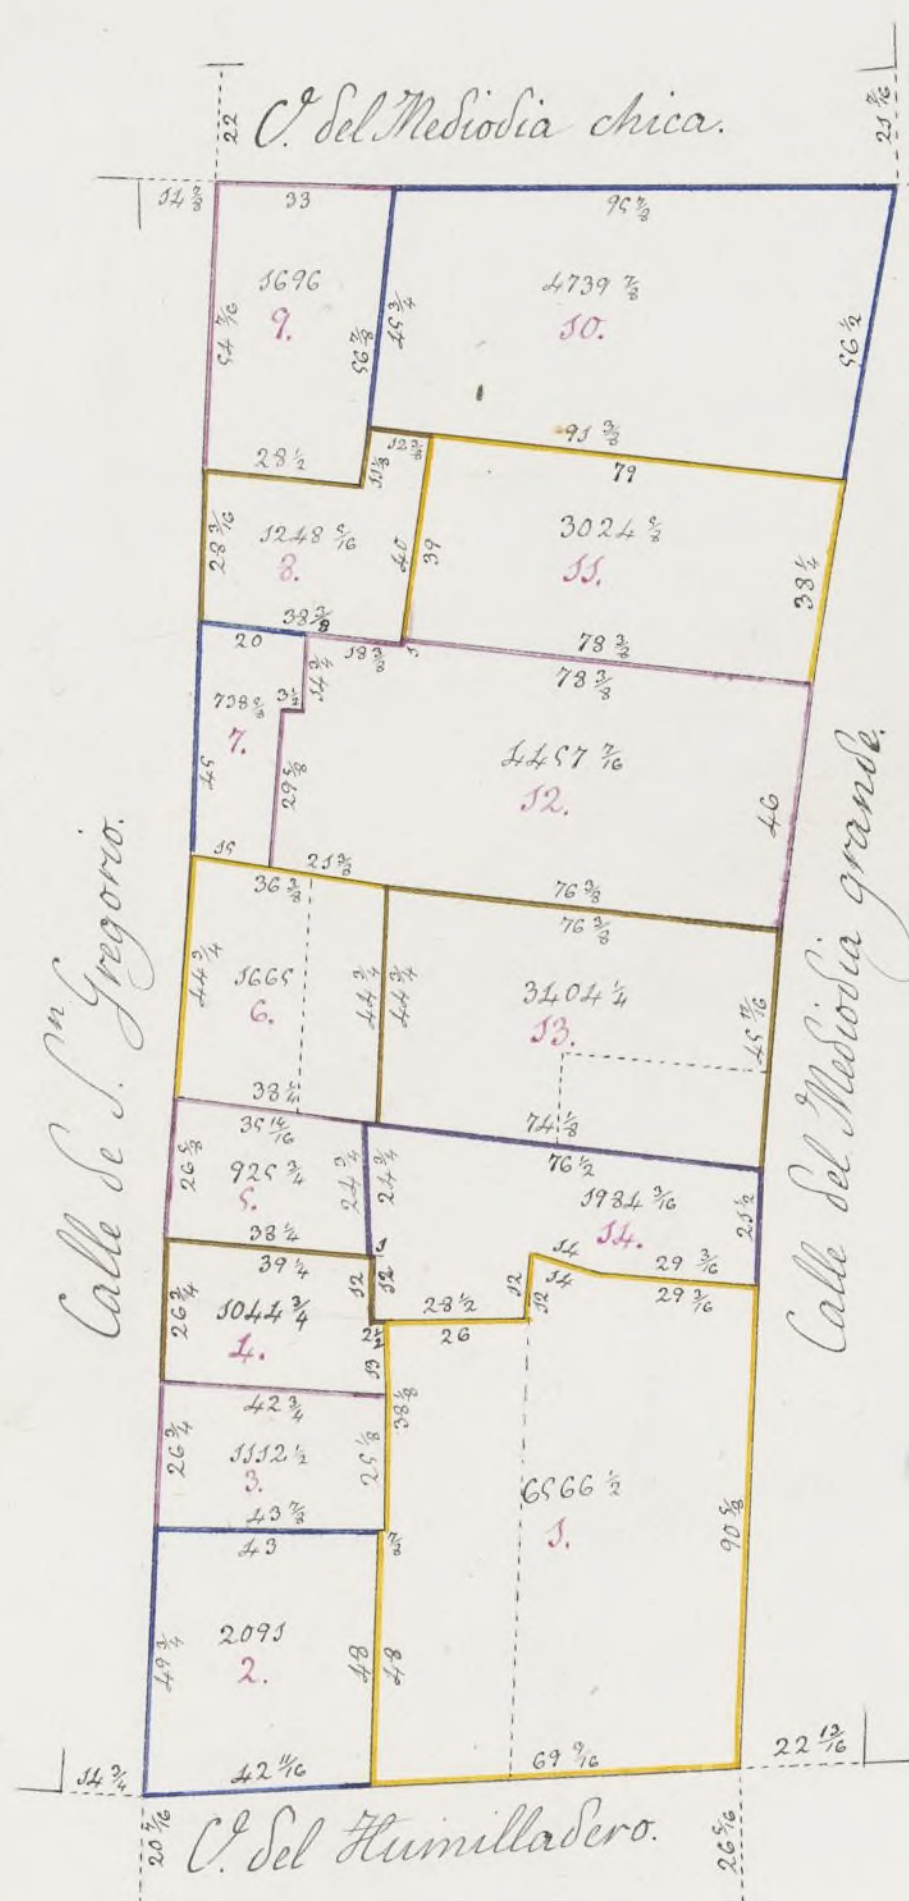 22
C. del Mediodia chica.
21 7/16
14 7/8
33
95 7/8
1696
9.
54 7/16
56 7/8
45 3/4
4739 7/8
10.
56 1/2
28 1/2
11 1/8
12 3/8
91 3/8
79
28 3/16
1248 5/16
8.
40
39
3024 5/8
11.
38 1/4
38 3/8
20
18 3/8
1
78 3/8
78 3/8
14 3/4
3 1/2
738 5/8
7.
45
29 5/8
4457 7/16
12.
46
15
21 3/8
36 3/8
76 3/8
76 3/8
44 3/4
1665
6.
44 3/4
44 3/4
3404 1/4
13.
45 11/16
38 1/4
35 14/16
74 1/8
76 1/2
26 5/8
925 3/4
5.
24 3/4
24 3/4
1984 3/16
14.
21 1/2
38 1/4
1
39 1/4
14
14
29 3/16
29 3/16
26 3/4
1044 3/4
4.
12
12
28 1/2
26
12
12
2 1/2
13
42 3/4
38 1/8
26 3/4
1112 1/2
3.
25 1/8
43 7/8
43
7/8
6566 1/2
1.
90 5/8
49 3/4
2091
2.
48
48
14 3/4
42 11/16
69 9/16
22 13/16
20 7/16
C. del Humilladero.
26 5/16
Calle de S.n Gregorio.
Calle del Mediodia grande.